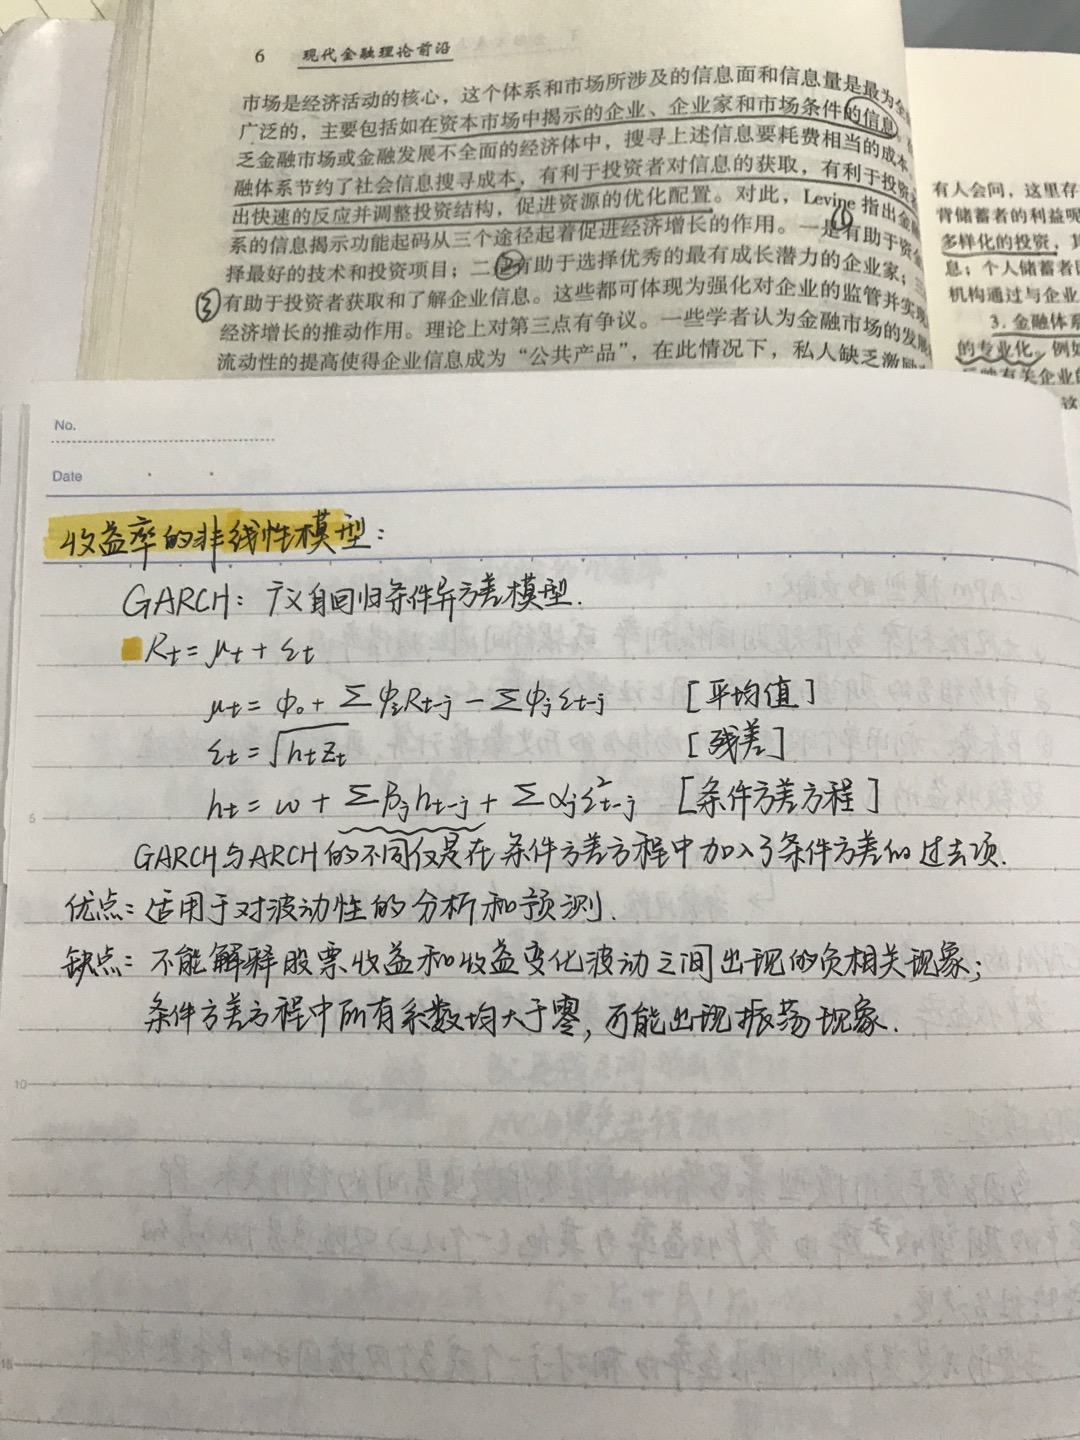 6 现代金融理论前沿
市场是经济活动的核心，这个体系和市场所涉及的信息面和信息量是最为
广泛的，主要包括如在资本市场中揭示的企业、企业家和市场条件的信息
乏金融市场或金融发展不全面的经济体中，搜寻上述信息要耗费相当的成本
融体系节约了社会信息搜寻成本，有利于投资者对信息的获取，有利于投资
出快速的反应并调整投资结构，促进资源的优化配置。对此，Levine 指出金
系的信息揭示功能起码从三个途径起着促进经济增长的作用。一是有助于资
① 
择最好的技术和投资项目；二是有助于选择优秀的最有成长潜力的企业家；
②
③ 有助于投资者获取和了解企业信息。这些都可体现为强化对企业的监管并实现
经济增长的推动作用。理论上对第三点有争议。一些学者认为金融市场的发展
流动性的提高使得企业信息成为“公共产品”，在此情况下，私人缺乏激励
有人会问，这里存
背储蓄者的利益呢
多样化的投资，
息；个人储蓄者
机构通过与企业
3. 金融体系
的专业化。例如
有关企业的
这
No.
Date
收益率的非线性模型：
GARCH：广义自回归条件异方差模型.
Rt = μt + εt
μt = φ0 + ΣφiRt-j - Σψjεt-j [平均值]
εt = √htzt [残差]
ht = ω + Σβjht-j + Σαjε²t-j [条件方差方程]
5
GARCH与ARCH的不同仅是在条件方差方程中加入了条件方差的过去项.
优点：适用于对波动性的分析和预测.
缺点：不能解释股票收益和收益变化波动之间出现的负相关现象；
条件方差方程中所有系数均大于零，可能出现振荡现象.
10
15